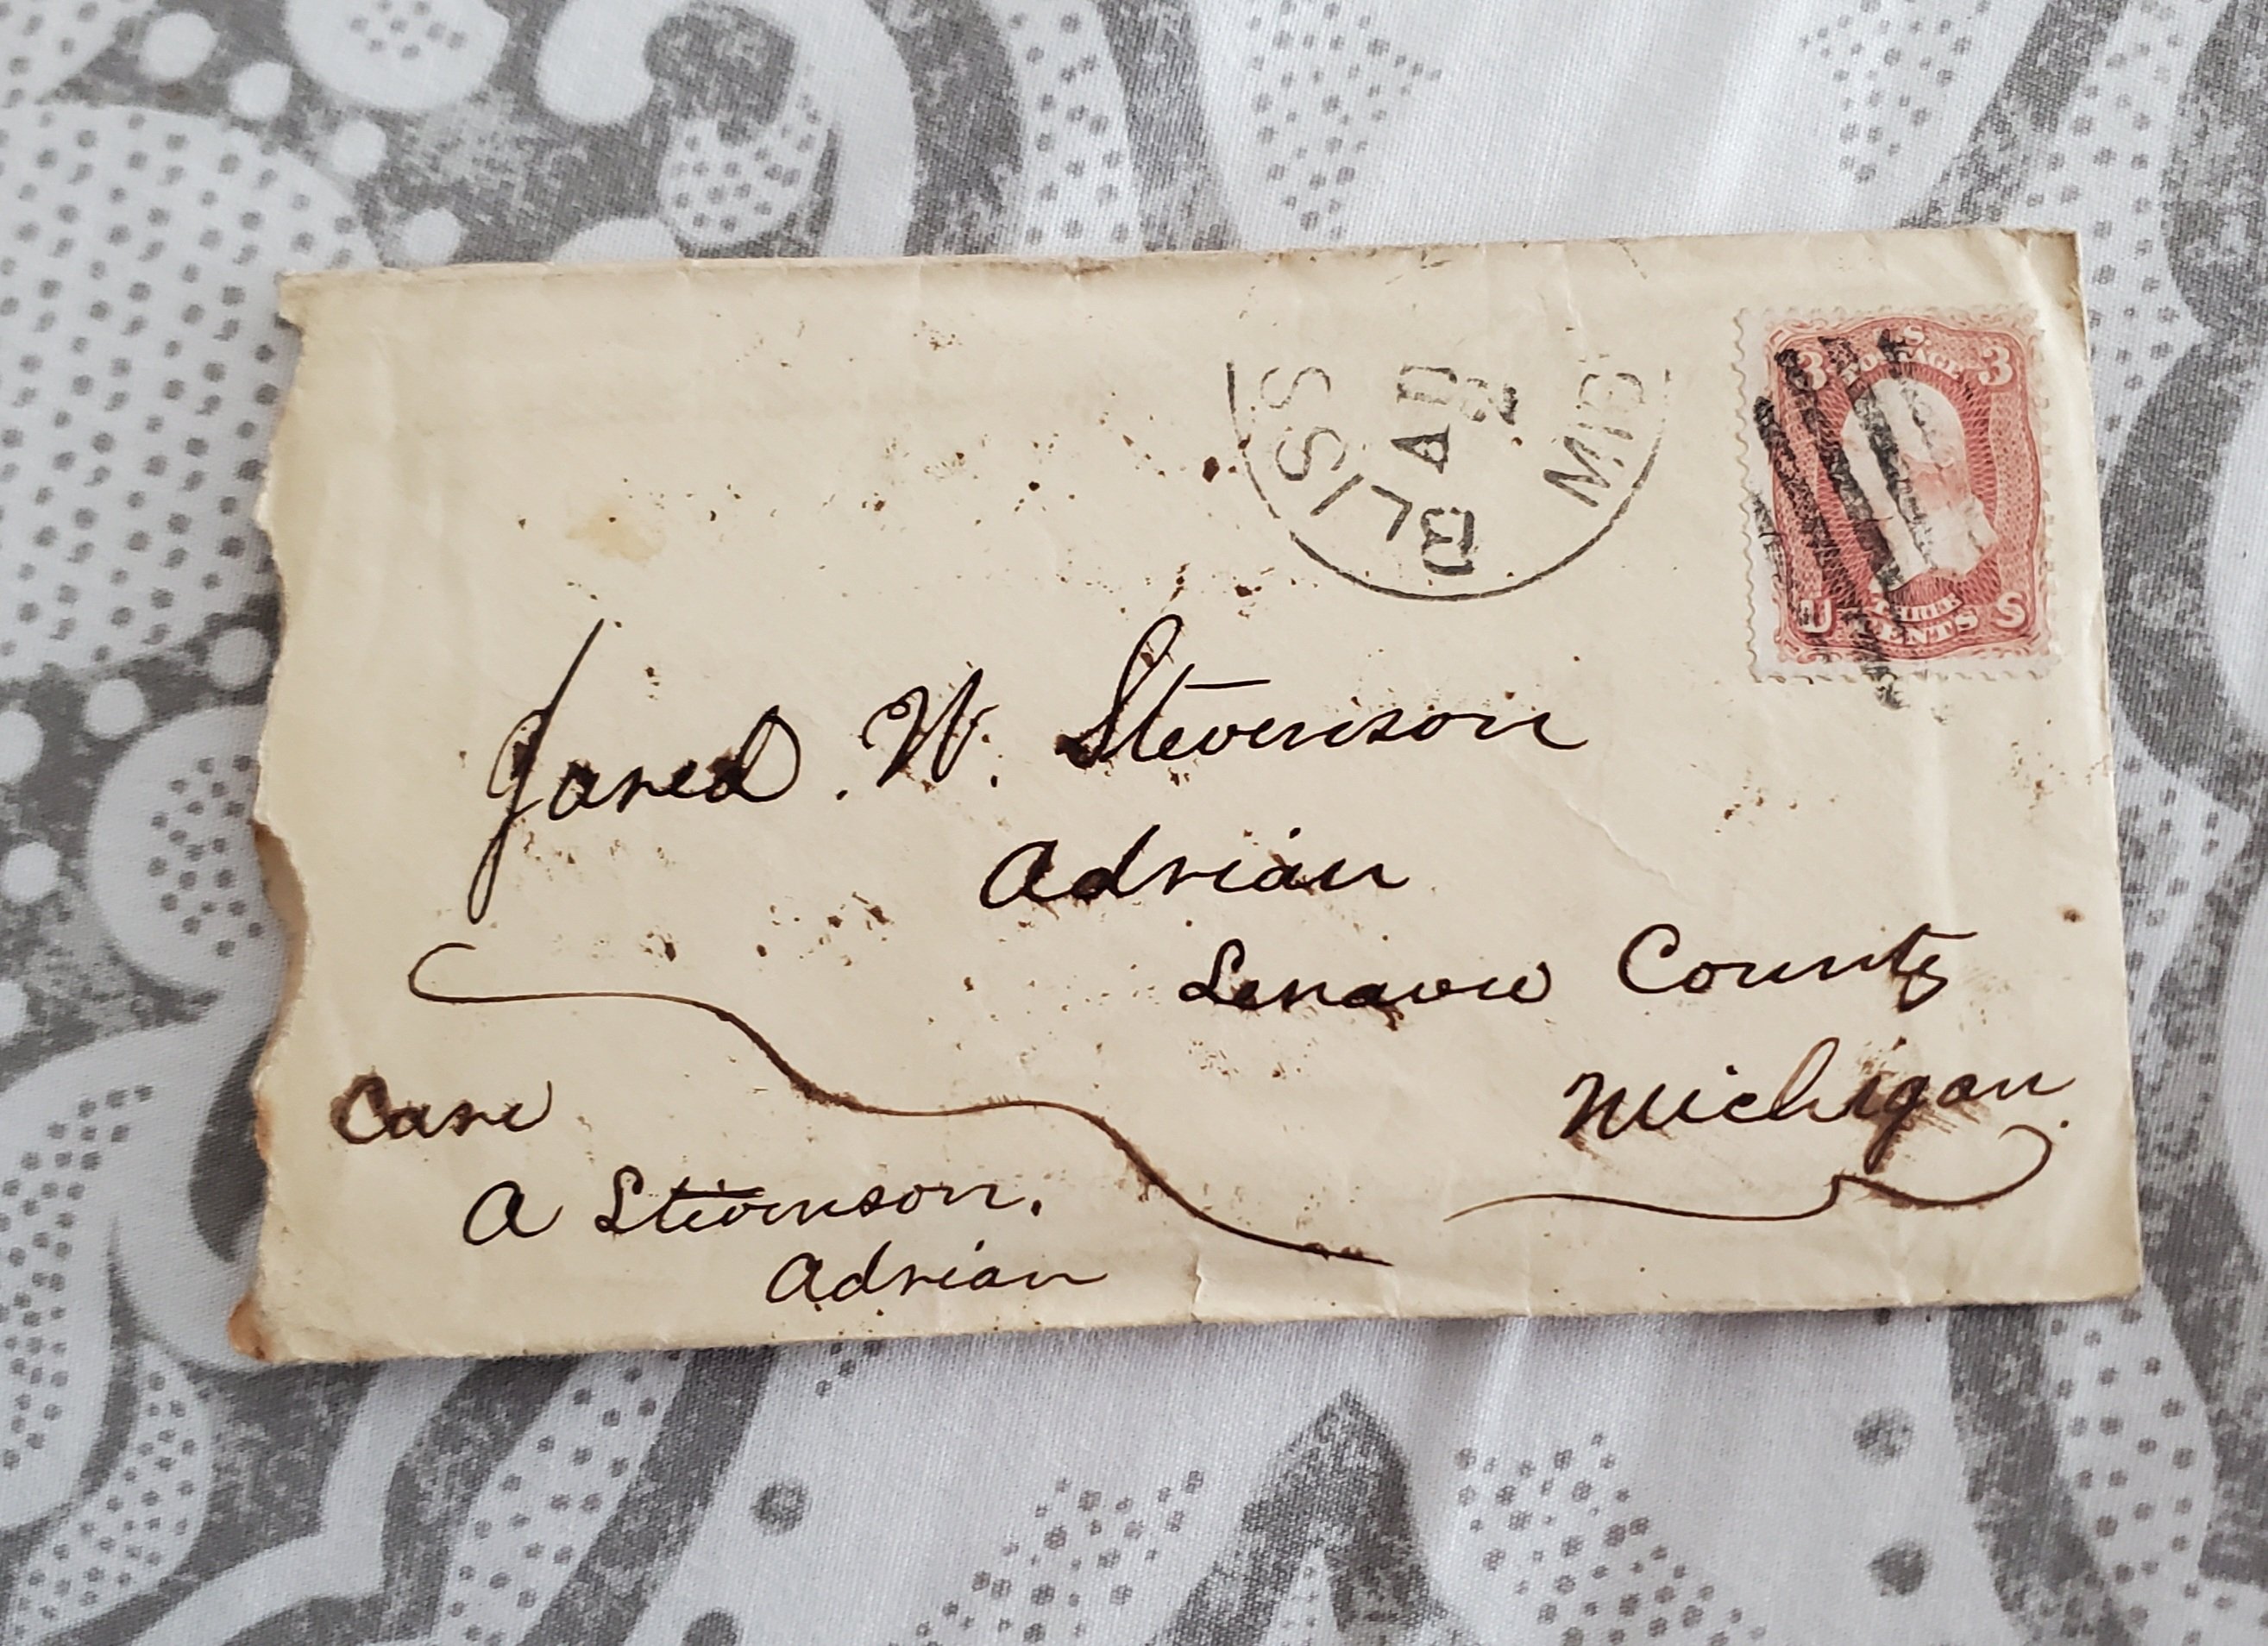 BLISS MIC
2
3 U.S. POSTAGE 3
U THREE CENTS S
Jared. W. Stevenson
Adrian
Lenawe County
Michigan.
Care
A Stevenson.
Adrian